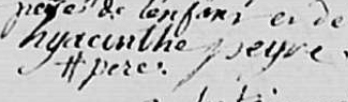 peres de lenfant et de
hyacinthe peyre
# peres